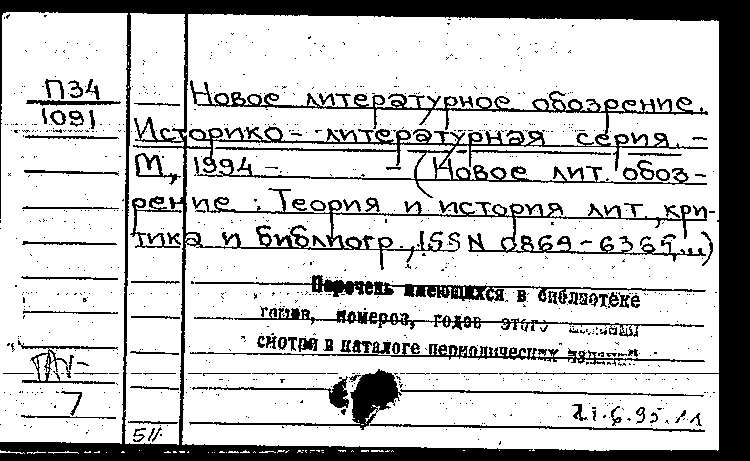 П34
1091
Новое литературное обозрение.
Историко-литературная серия. -
М, 1994 -          - (Новое лит. обоз-
рение : Теория и история лит., кри-
тика и библиогр., ISSN 0869-6365, ...)
Перечень имеющихся в библиотеке
томов, номеров, годов этого издания
смотри в каталоге периодических изданий
7
511
21.6.95.11